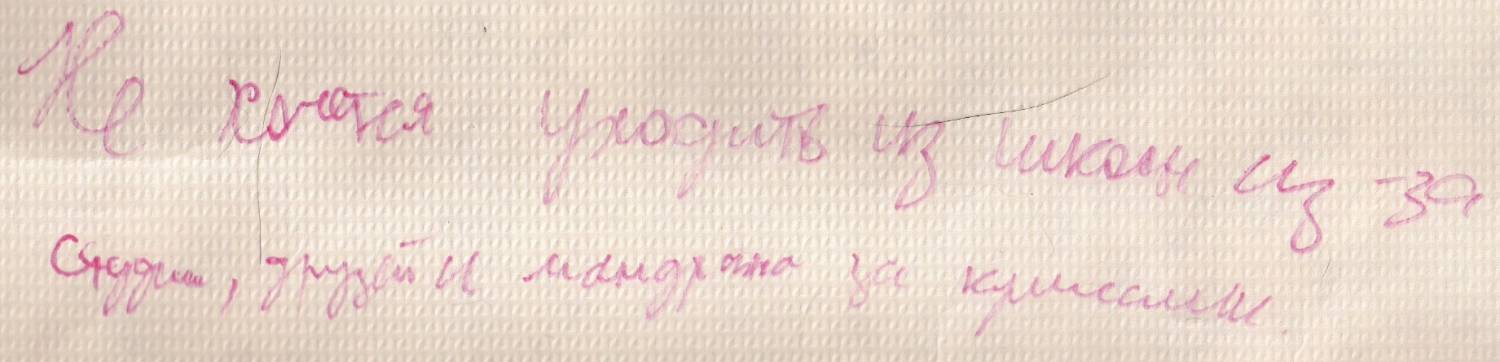 Не хочется уходить из школы из-за
студии, друзей и мандража за кулисами.